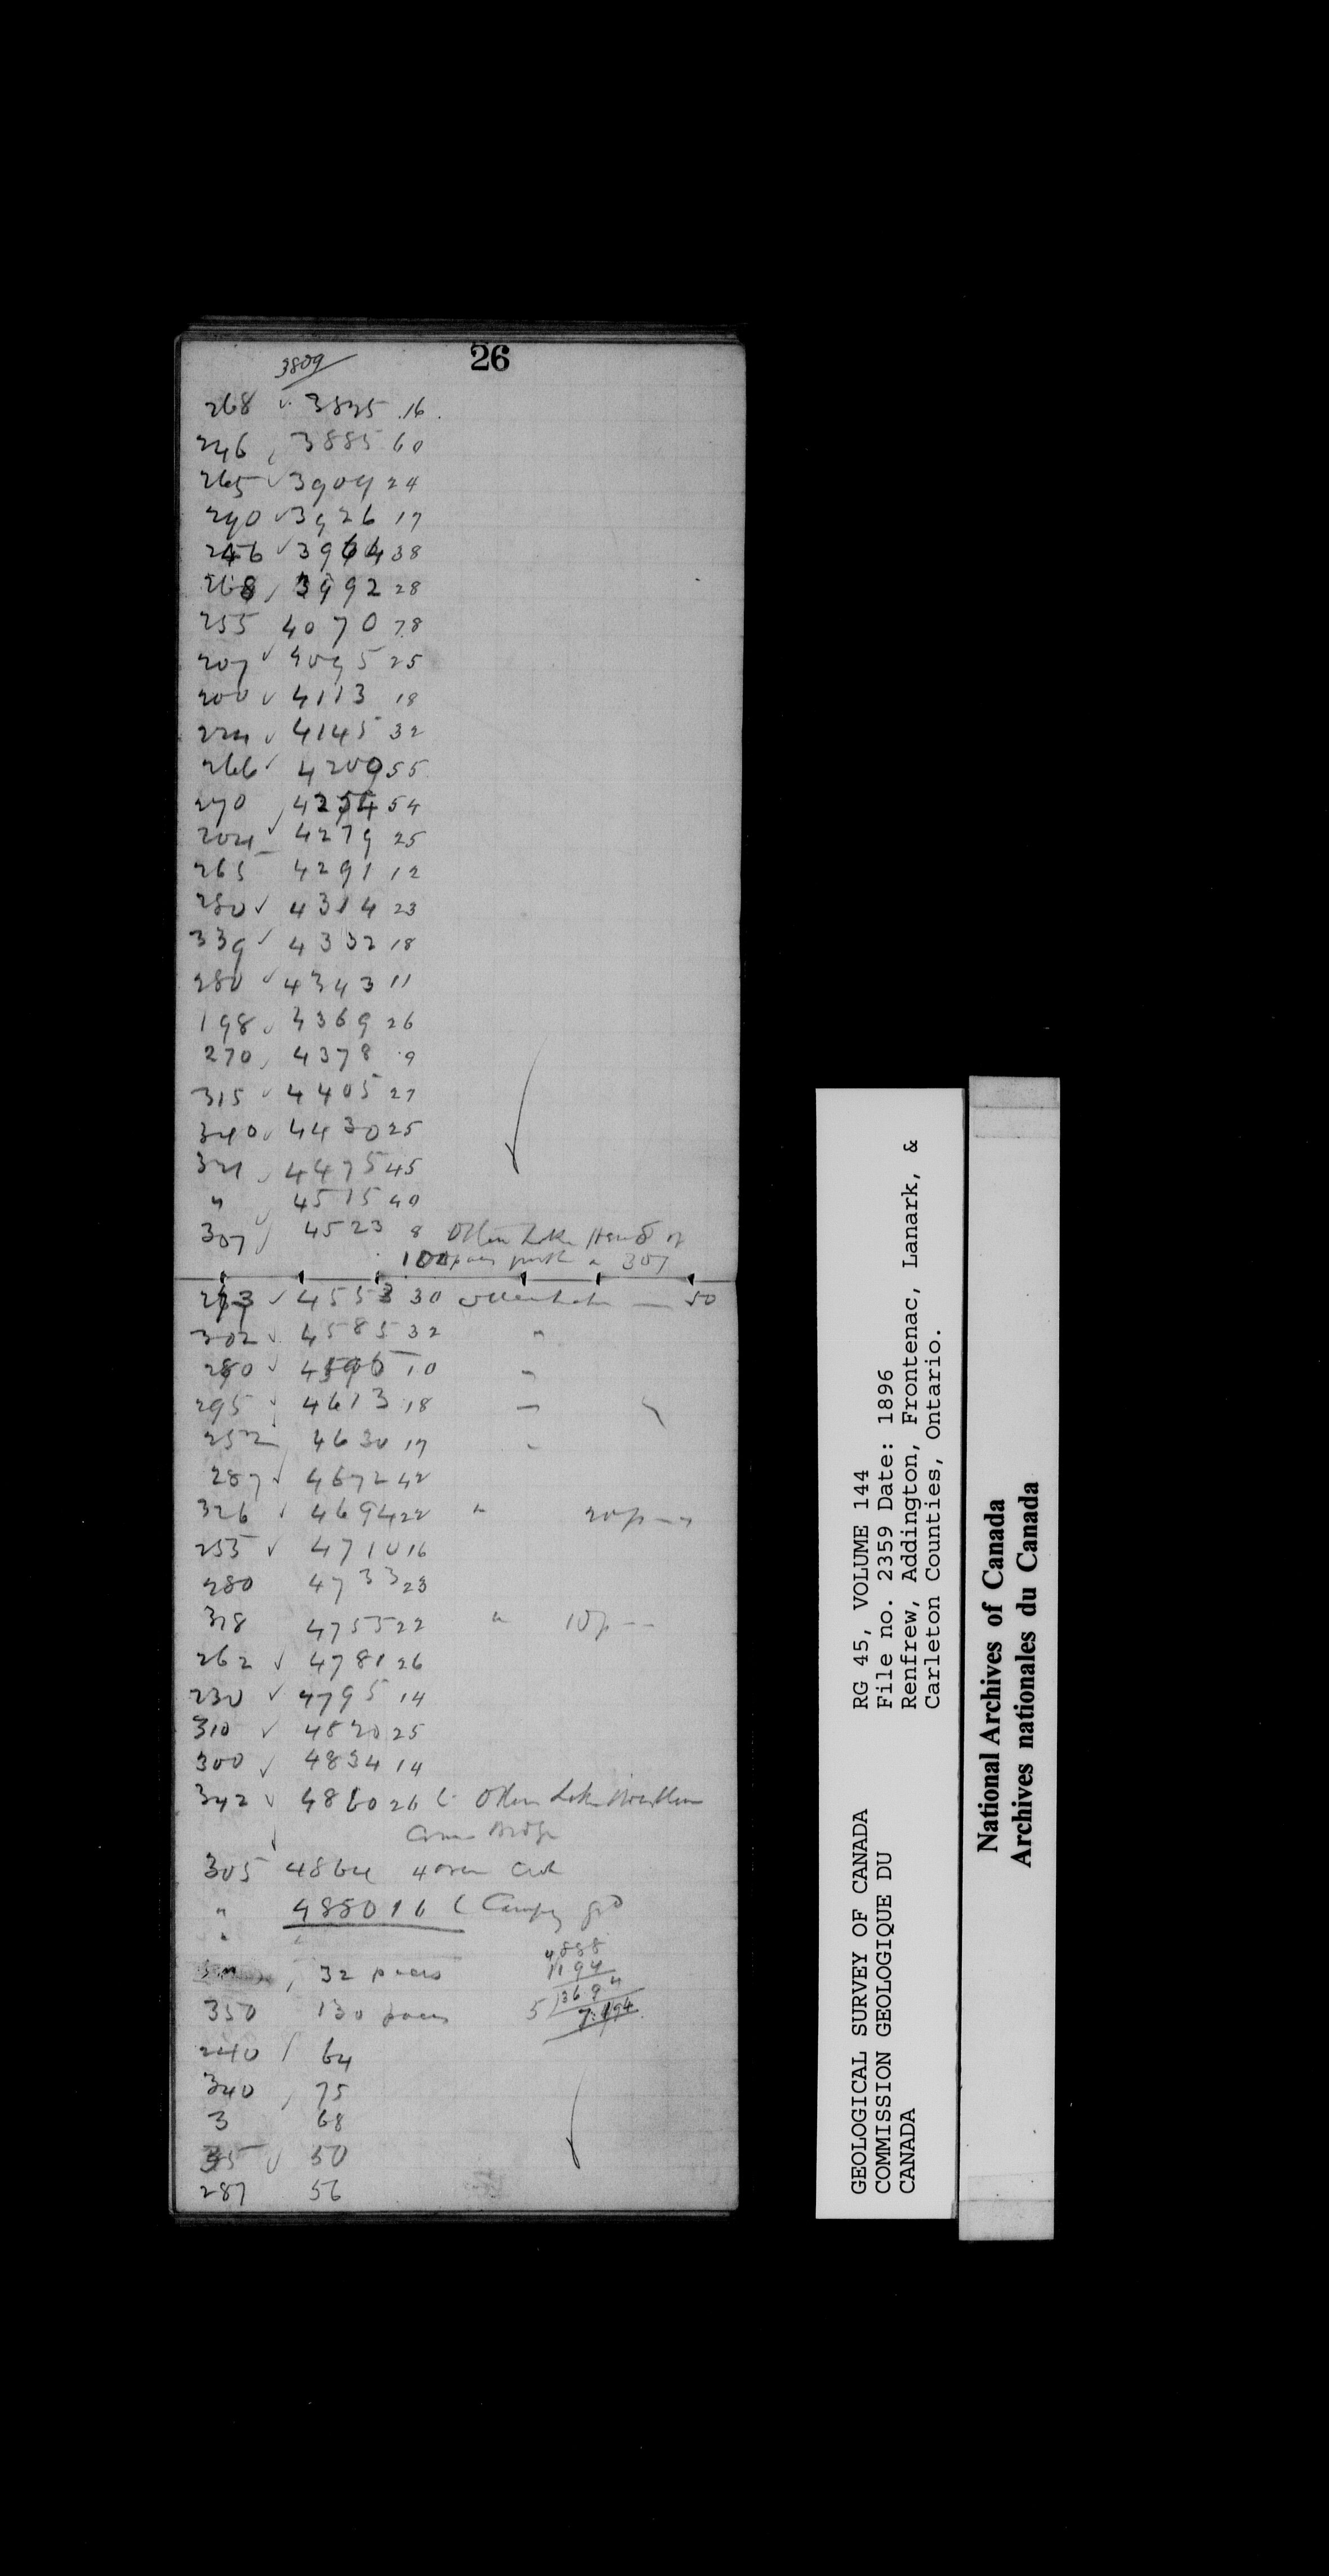 26
3809
268 ✓ 3825 16
246 3885 60
265 ✓ 3909 24
290 ✓ 3926 17
246 ✓ 3964 38
268 3992 28
255 4070 78
207 ✓ 4095 25
200 ✓ 4113 18
224 ✓ 4145 32
266 ✓ 4200 55
270 4254 54
204 ✓ 4279 25
265 4291 12
280 ✓ 4314 23
339 ✓ 4332 18
280 ✓ 4343 11
198 ✓ 4369 26
270 4378 9
315 ✓ 4405 27
340 ✓ 4430 25
321 4475 45
" 4515 40
307 4523 8 Otter Lake
100 paces 307
273 ✓ 4553 30 Otter Lake — 50
302 ✓ 4585 32 "
280 ✓ 4595 10 "
295 4613 18 "
252 4630 17 "
287 ✓ 4672 42
326 ✓ 4694 22 " 20 p
255 ✓ 4710 16
280 4733 23
318 4755 22 " 10 p
262 ✓ 4781 26
230 ✓ 4795 14
310 ✓ 4820 25
300 ✓ 4834 14
342 ✓ 4860 26 Otter Lake
Bridge
305 4864 4 over
" 4880 16 Camping grd
"
32 paces
350 130 paces
4888
1194
5 3694
7.494
240 64
340 75
3 68
35 ✓ 50
287 56
GEOLOGICAL SURVEY OF CANADA
COMMISSION GEOLOGIQUE DU
CANADA
RG 45, VOLUME 144
File no. 2359 Date: 1896
Renfrew, Addington, Frontenac, Lanark, &
Carleton Counties, Ontario.
National Archives of Canada
Archives nationales du Canada